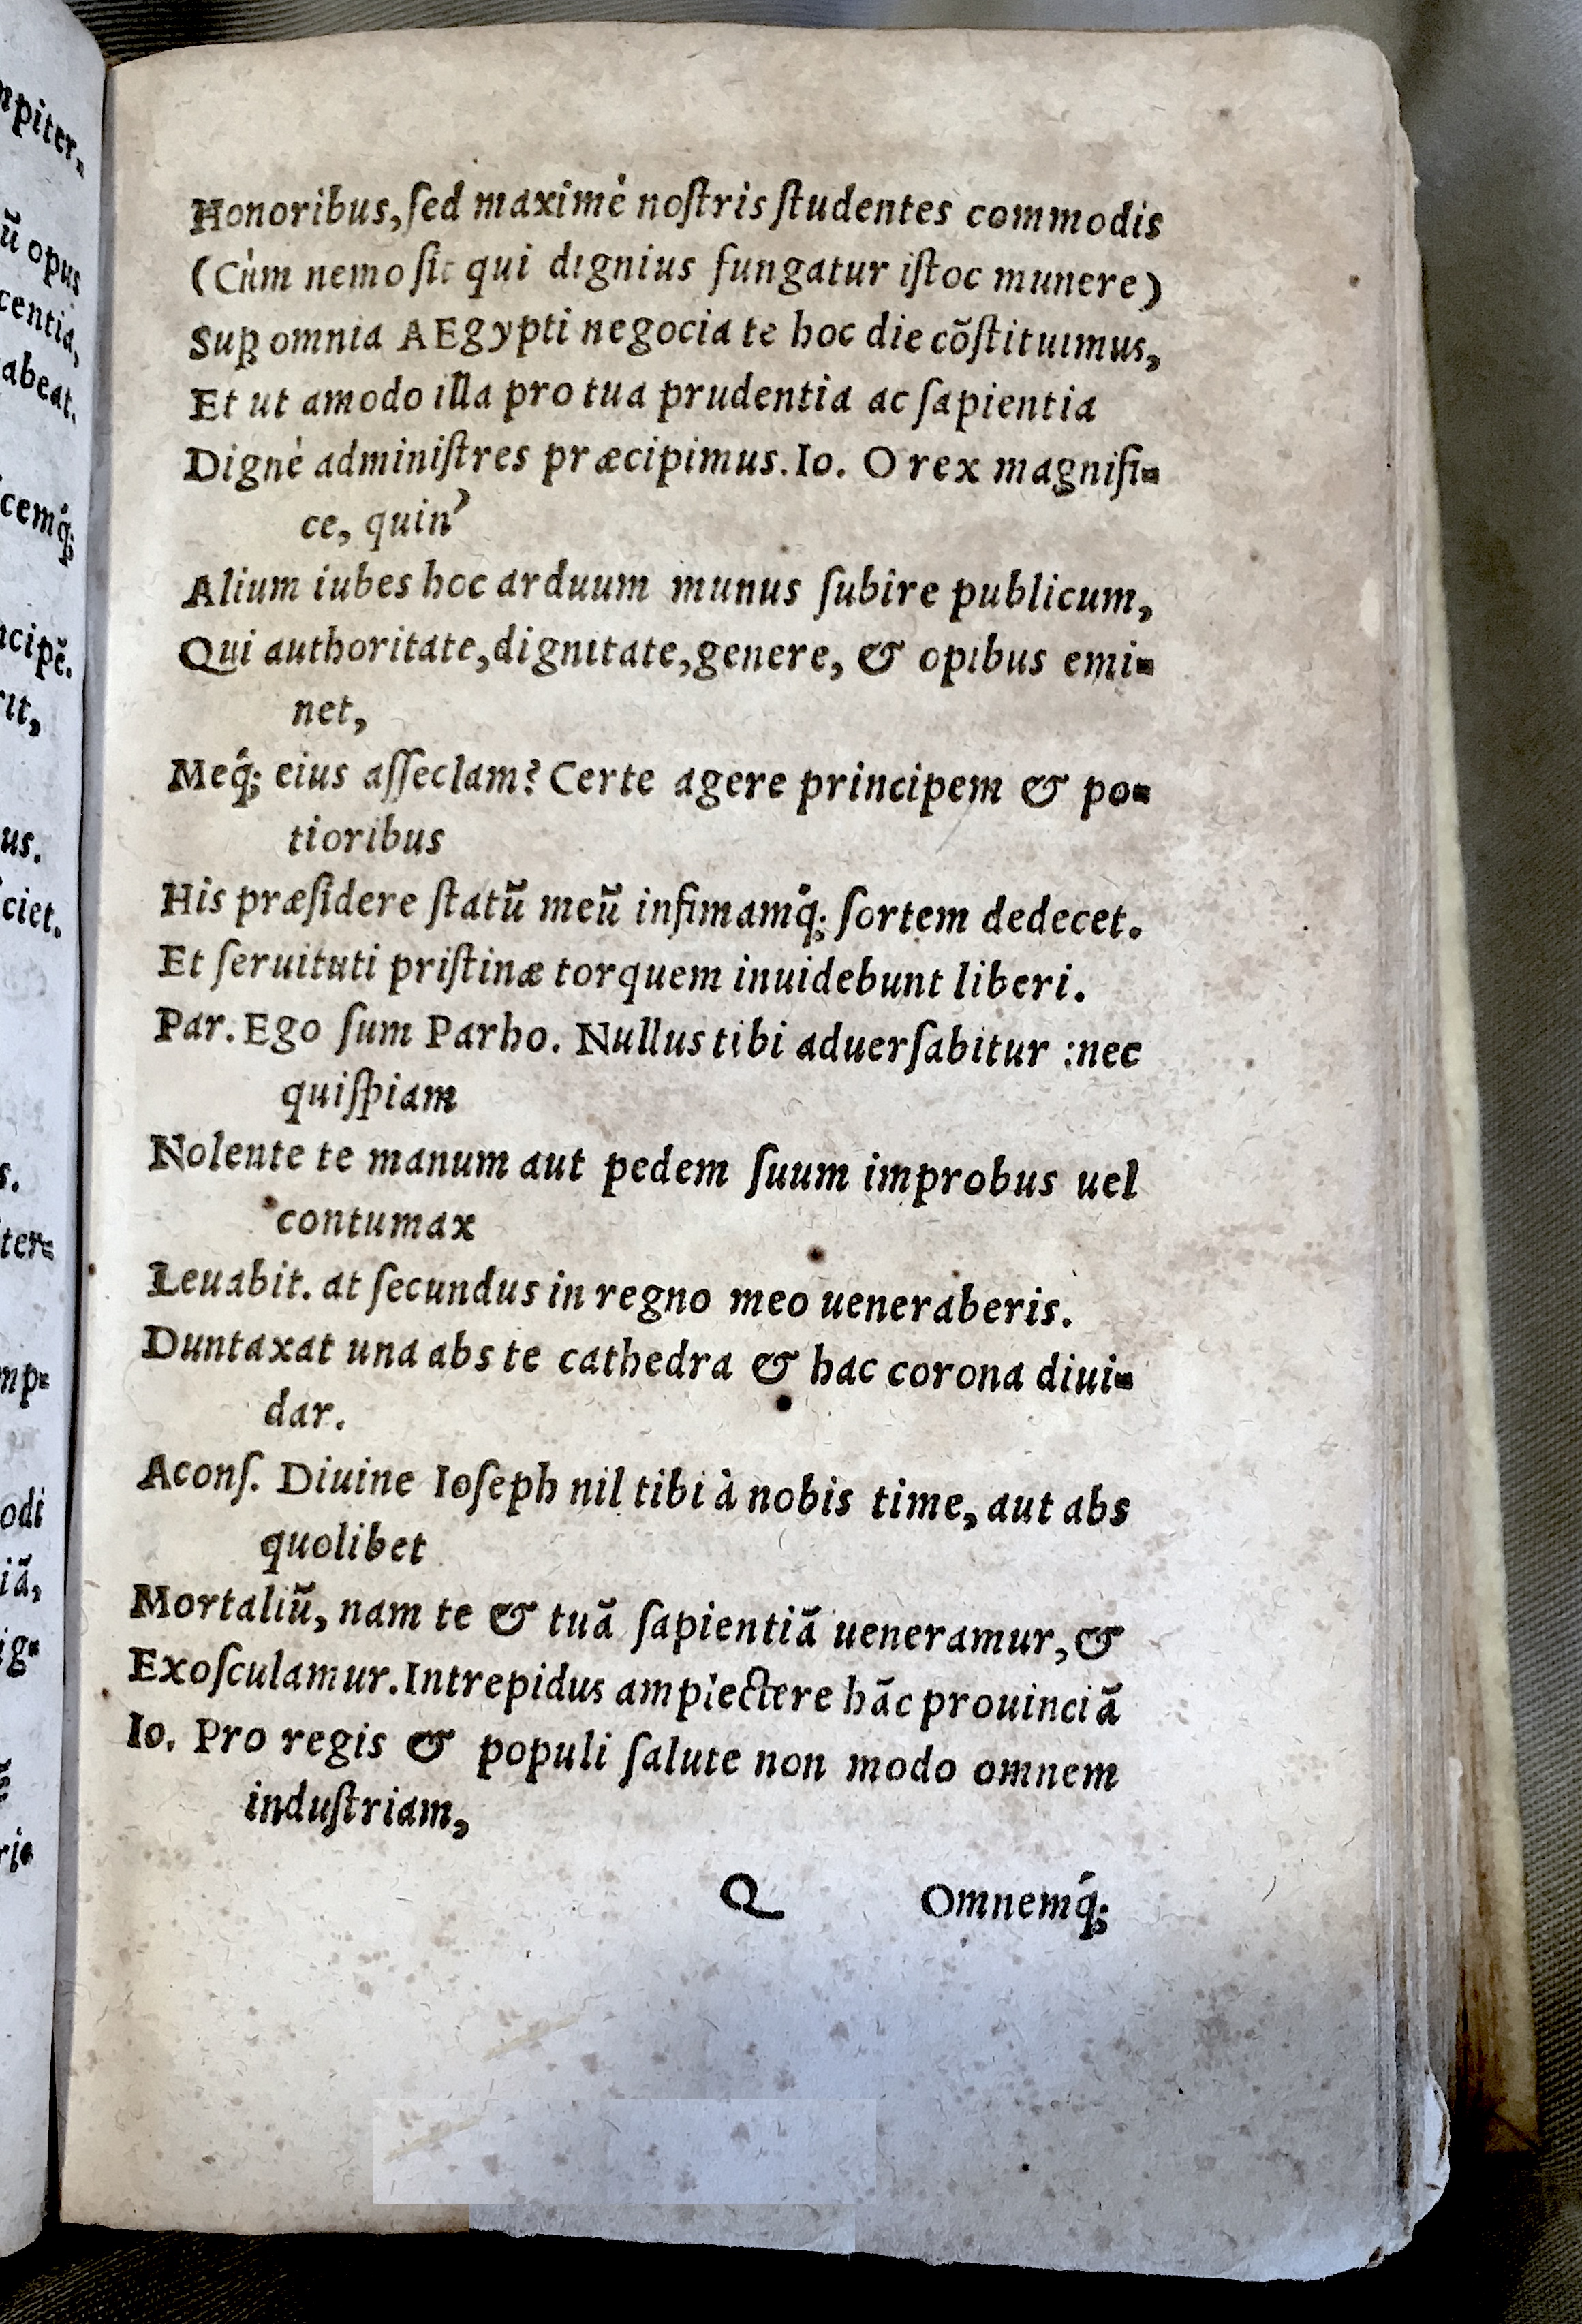 Honoribus, ſed maximè noſtris ſtudentes commodis
(Cùm nemo ſit qui dignius fungatur iſtoc munere)
Suꝑ omnia AEgypti negocia te hoc die cõſtituimus,
Et ut amodo illa pro tua prudentia ac ſapientia
Dignè adminiſtres præcipimus. Io. O rex magnifi-
ce, quin
Alium iubes hoc arduum munus ſubire publicum,
Qui authoritate, dignitate, genere, & opibus emi-
net,
Meq́; eius aſſeclam? Certe agere principem & po-
tioribus
His præſidere ſtatũ meũ infimamq́; ſortem dedecet.
Et ſeruituti priſtinæ torquem inuidebunt liberi.
Par. Ego ſum Parho. Nullus tibi aduerſabitur : nec
quiſpiam
Nolente te manum aut pedem ſuum improbus uel
contumax
Leuabit. at ſecundus in regno meo ueneraberis.
Duntaxat una abs te cathedra & hac corona diui-
dar.
Aconſ. Diuine Ioſeph nil tibi à nobis time, aut abs
quolibet
Mortaliũ, nam te & tuã ſapientiã ueneramur, &
Exoſculamur. Intrepidus amplectere hãc prouinciã
Io. Pro regis & populi ſalute non modo omnem
induſtriam,
Q Omnemq́;